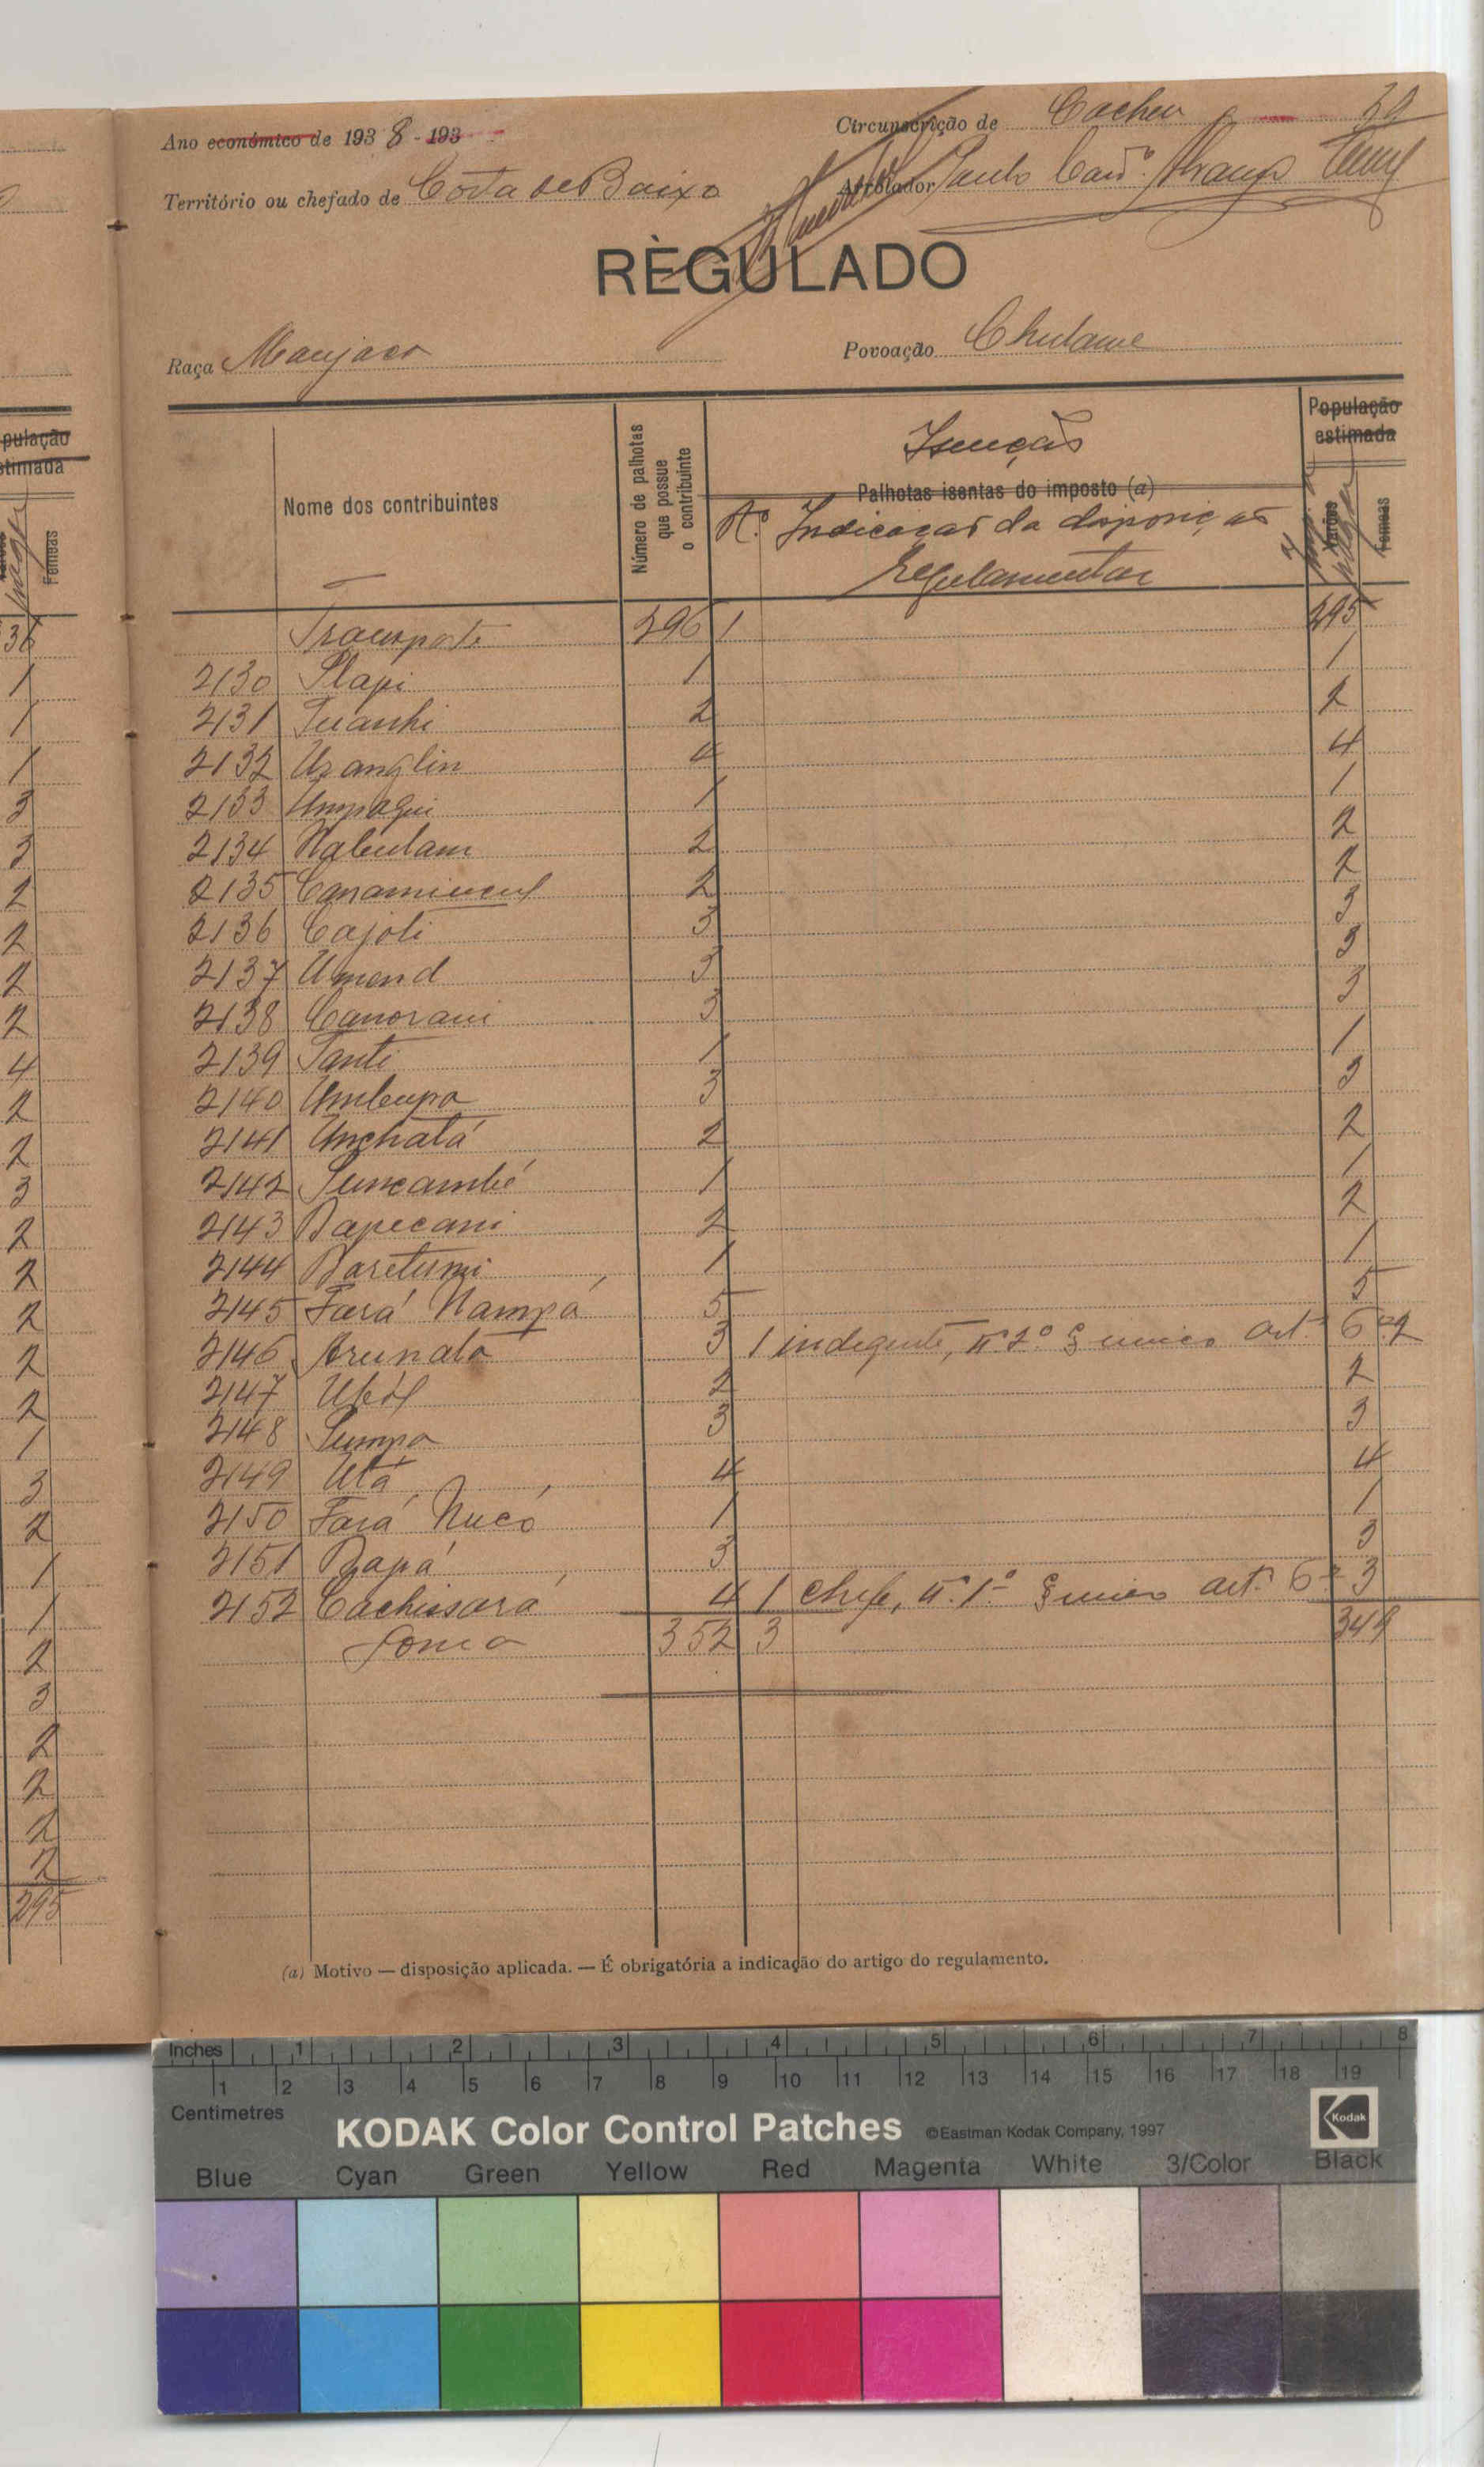 Ano económico de 1938-193
Circunscrição de Cacheu
39
Território ou chefado de Costa de Baixo
Arrolador Paulo
RÈGULADO
Raça Manjaco
Povoação Chulame
Nome dos contribuintes
Número de palhotas que possue o contribuinte
Isenção
Palhotas isentas do imposto (a)
Nº Indicação da disposição
Regulamentar
População estimada
Varões
Femeas
Transporte 296 1 295
2130 Plapi 1 1
2131 Tuanhi 2 2
2132 Uzanglin 4 4
2133 Umpaqui 1 1
2134 Nabulam 2 2
2135 2 2
2136 Cajoli 3 3
2137 Umend 3 3
2138 Canorani 3 3
2139 Tanti 1 1
2140 Umbupa 3 3
2141 Unchatá 2 2
2142 Suncambé 1 1
2143 Bapecani 2 2
2144 Baretumi 1 1
2145 Fará Nampá 5 5
2146 Arunato 3 1 indegente, nº 2º § unico art. 6º 2
2147 Uból 2 2
2148 Sumpa 3 3
2149 Utá 4 4
2150 Fará Nucó 1 1
2151 Bapá 3 3
2152 Cachissará 4 1 chefe, nº 1º § unico art. 6º 3
Soma 352 3 349
(a) Motivo — disposição aplicada. — É obrigatória a indicação do artigo do regulamento.
pulação
stimada
Femeas
36
1
1
1
3
3
2
2
2
2
4
2
2
3
2
2
2
2
2
1
3
2
1
1
2
3
2
2
2
2
295
Inches 1 2 3 4 5 6 7 8
1 2 3 4 5 6 7 8 9 10 11 12 13 14 15 16 17 18 19
Centimetres
KODAK Color Control Patches ©Eastman Kodak Company, 1997
Kodak
Blue Cyan Green Yellow Red Magenta White 3/Color Black